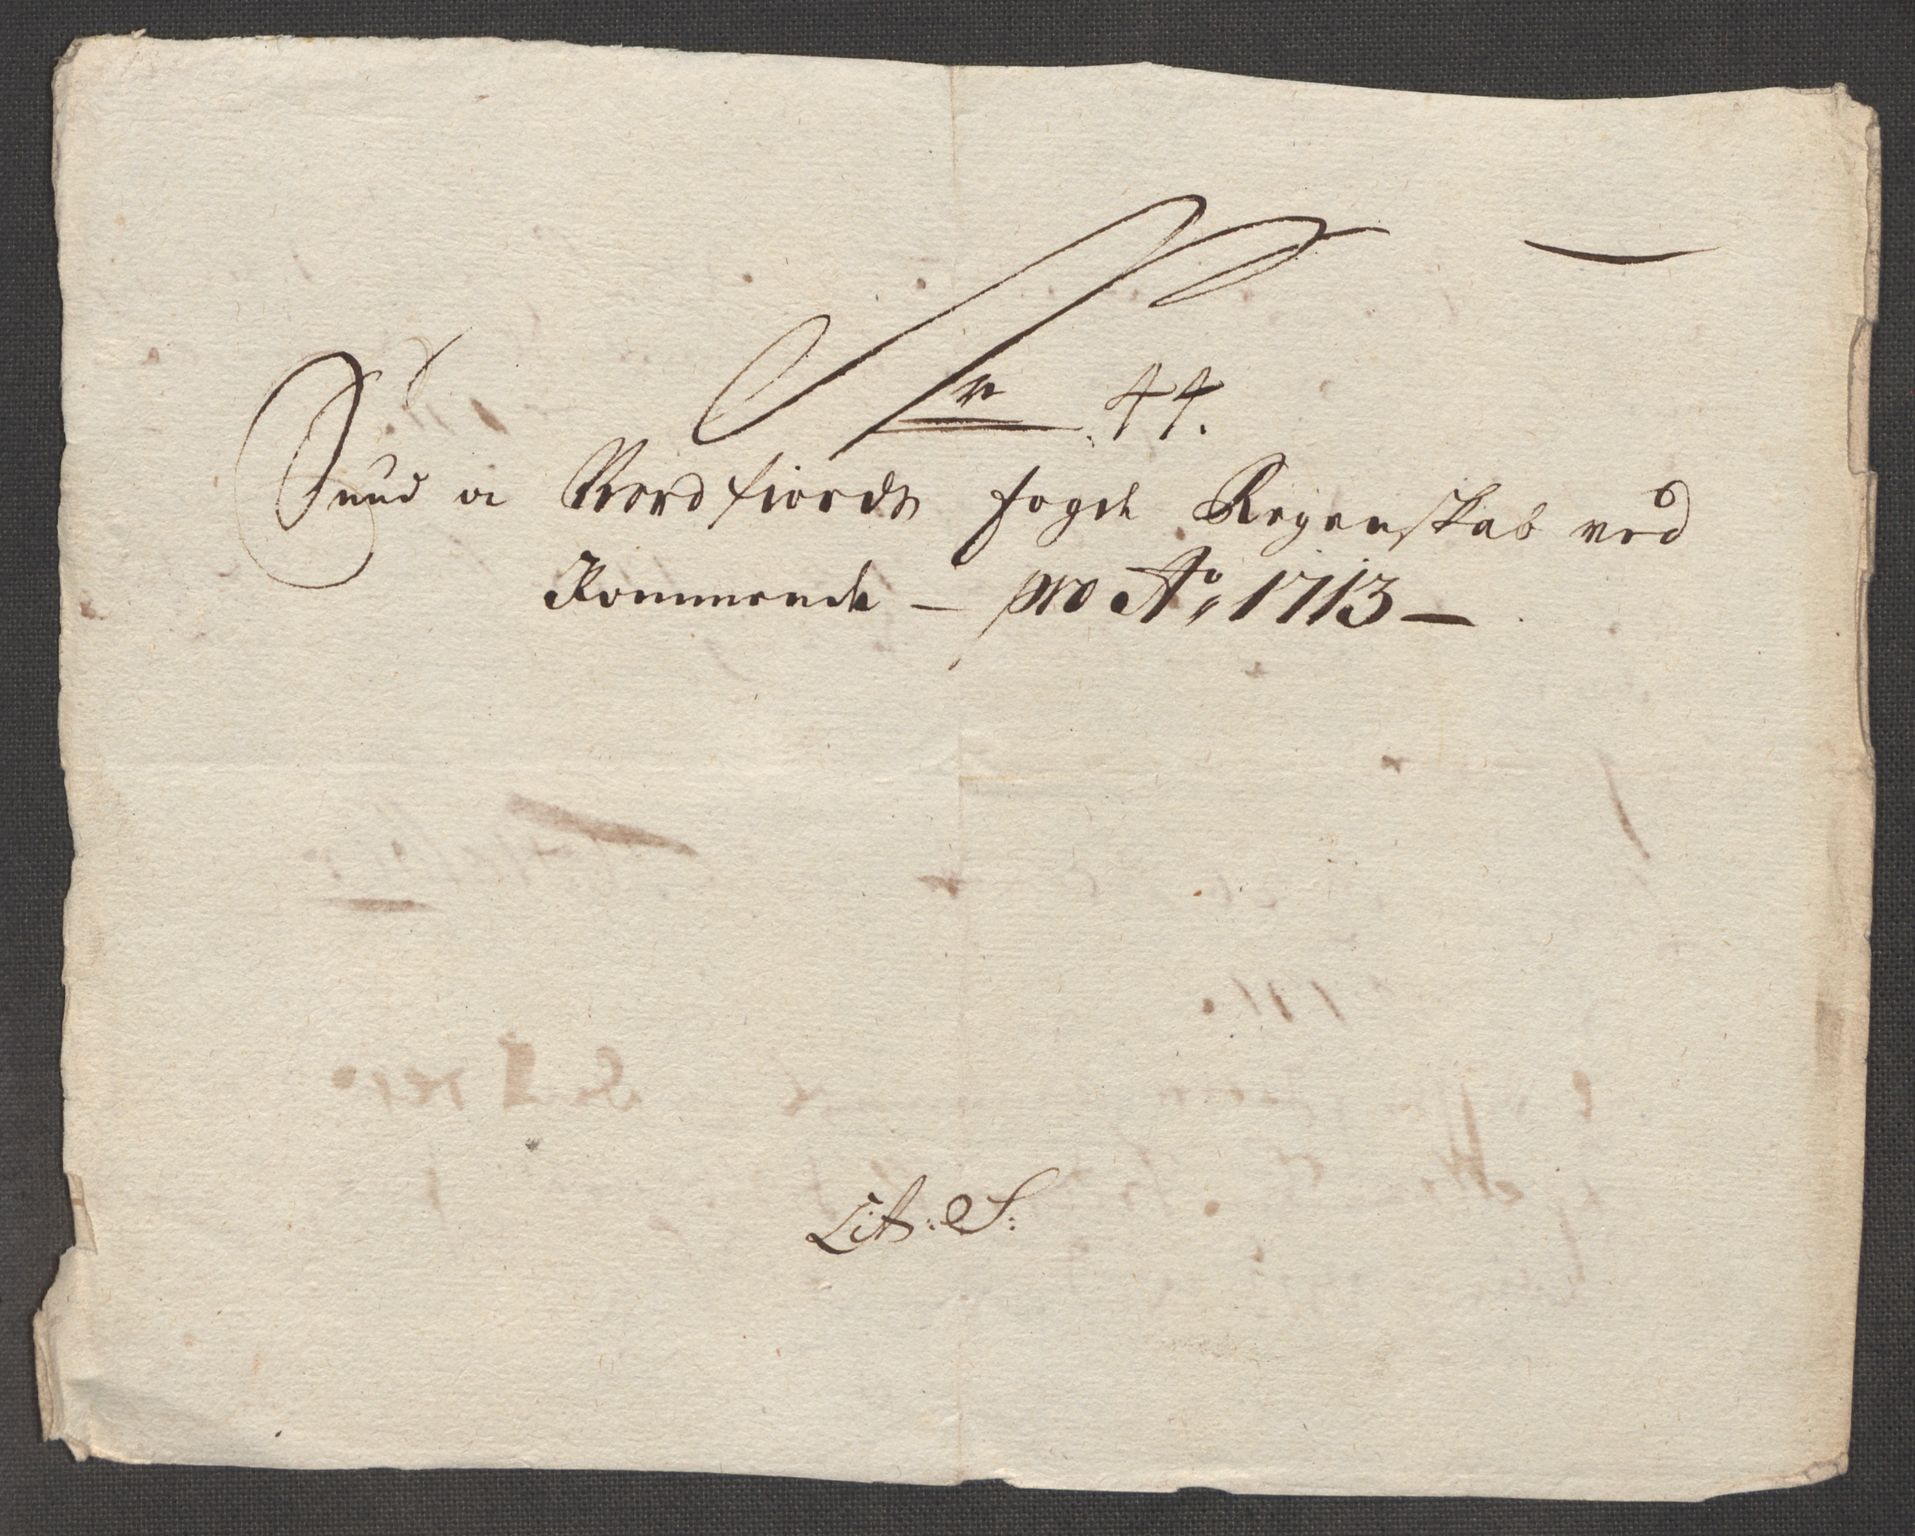 Nr 44.
Sund oc Nordfiords fogde Regenskab ved
Kommende – pro Ao, 1713 –
Lit: S: